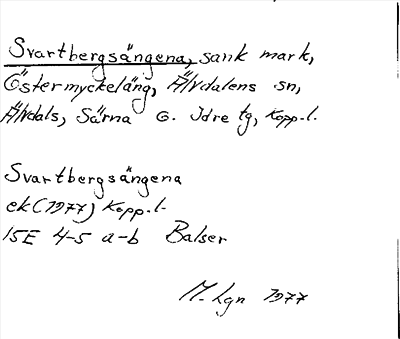 Svartbergsängena, sank mark,
Östermyckeläng, Älvdalens sn,
Älvdals, Särna o. Idre tg, Kopp.l.
Svartbergsängena
ek (1977) Kopp.l.
15E 4-5 a-b Balser
M. Lgn 1977